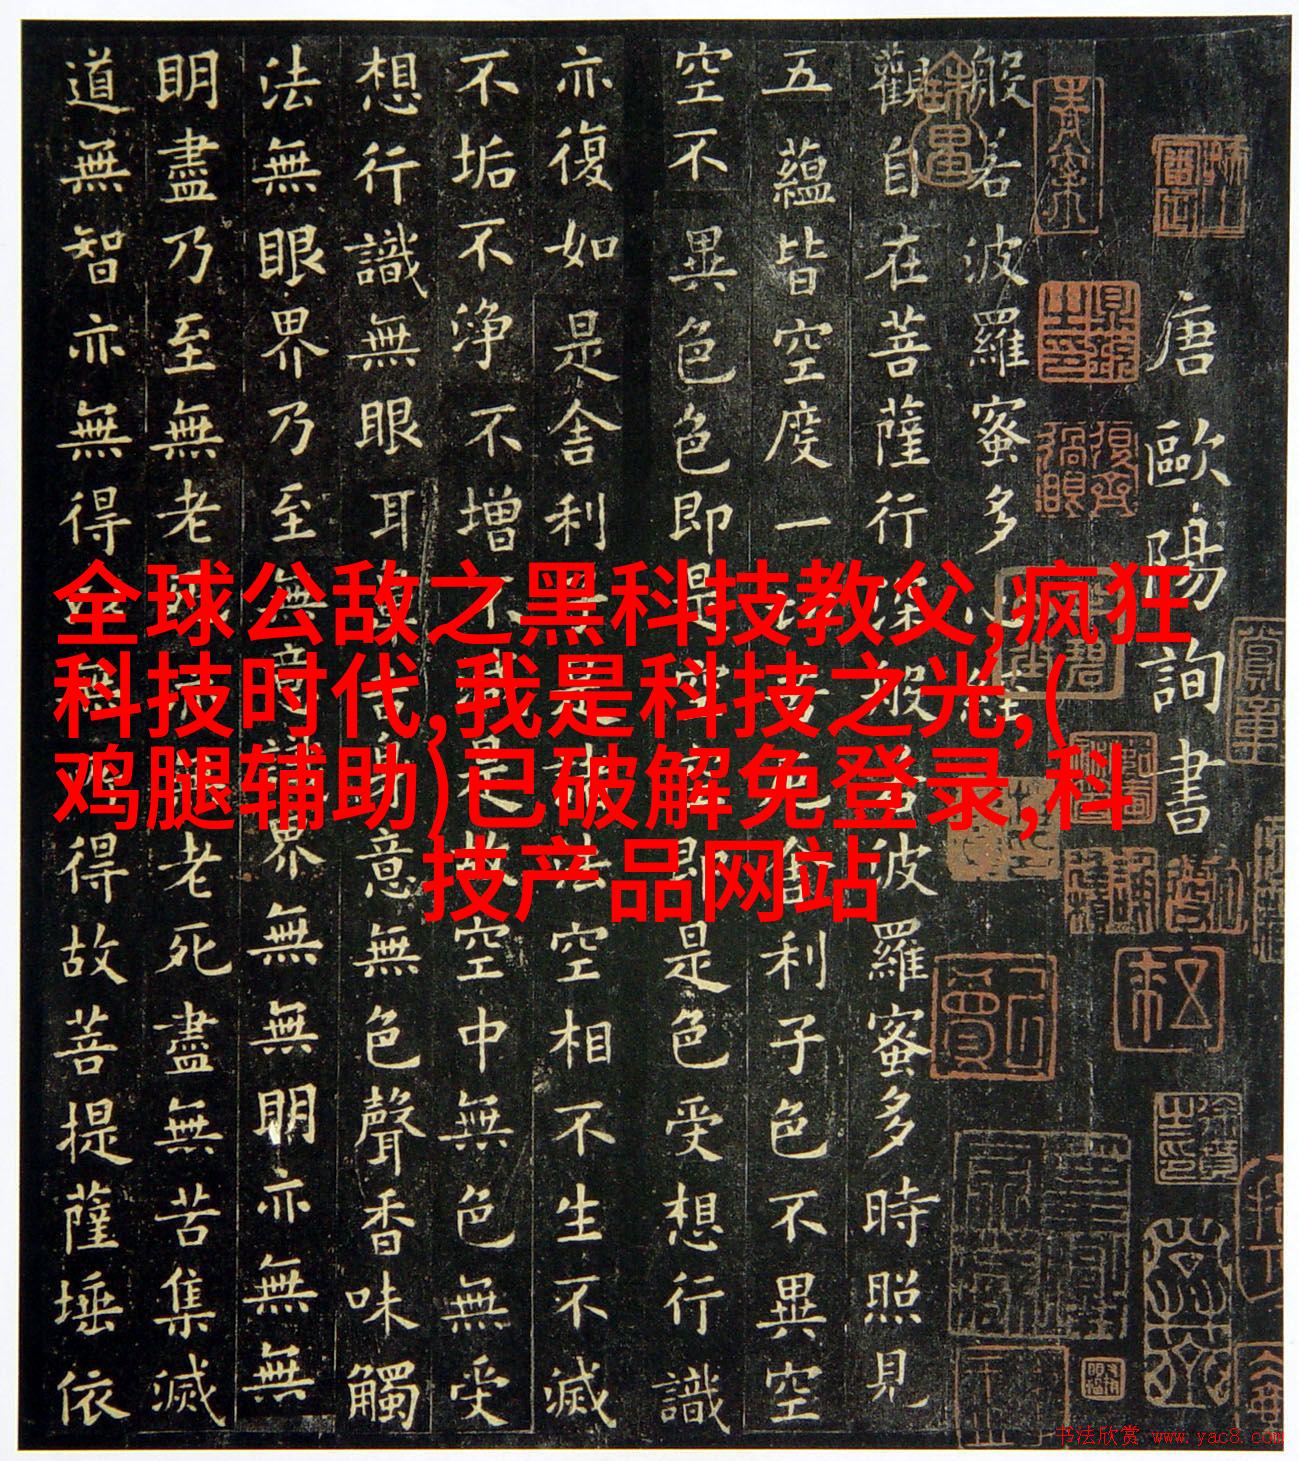 全球公敌之黑科技教父,疯狂
科技时代,我是科技之光,(
鸡腿辅助)已破解免登录,科
技产品网站
唐歐陽詢書
般若波羅蜜多心經
觀自在菩薩行深般若波羅蜜多時照見
五蘊皆空度一切苦厄舍利子色不異空
空不異色色即是空空即是色受想行識
亦復如是舍利子是諸法空相不生不滅
不垢不淨不增不減是故空中無色無受
想行識無眼耳鼻舌身意無色聲香味觸
法無眼界乃至無意識界無無明亦無無
明盡乃至無老死亦無老死盡無苦集滅
道無智亦無得以無所得故菩提薩埵依
书法欣赏 www.yac8.com